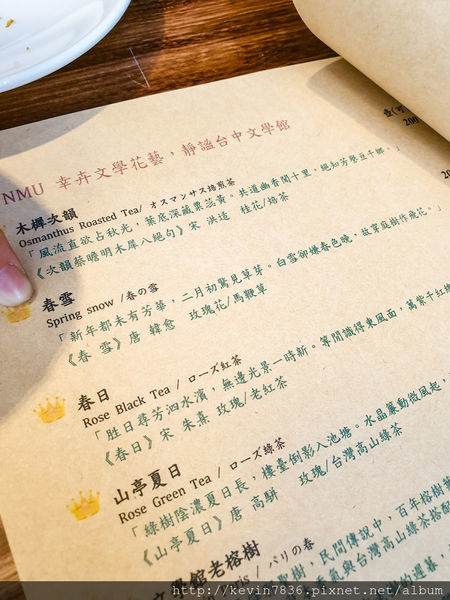 NMU 幸卉文學花藝，靜謐台中文學館
壺(可
200
木樨次韻
Osmanthus Roasted Tea/ オスマンサス焙煎茶
「風流直欲占秋光，葉底深藏粟蕊黃。共道幽香聞十里，絕知芳譽亘千鄉。」
《次韻蔡瞻明木犀八絕句》宋 洪适 桂花/焙茶
20
春雪
Spring snow /春の雪
「新年都未有芳華，二月初驚見草芽。白雪卻嫌春色晚，故穿庭樹作飛花。」
《春 雪》唐 韓愈 玫瑰花/馬鞭草
春日
Rose Black Tea / ローズ紅茶
「勝日尋芳泗水濱，無邊光景一時新。等閒識得東風面，萬紫千紅總
《春日》宋 朱熹 玫瑰/老紅茶
山亭夏日
Rose Green Tea / ローズ緑茶
「綠樹陰濃夏日長，樓臺倒影入池塘。水晶簾動微風起，
《山亭夏日》唐 高駢 玫瑰/台灣高山綠茶
文學館老榕樹
is / パリの春
聖樹，民間傳說中，百年榕樹
香氣與台灣高山綠茶搭配
的迴暮，
http://kevin7836.pixnet.net/album